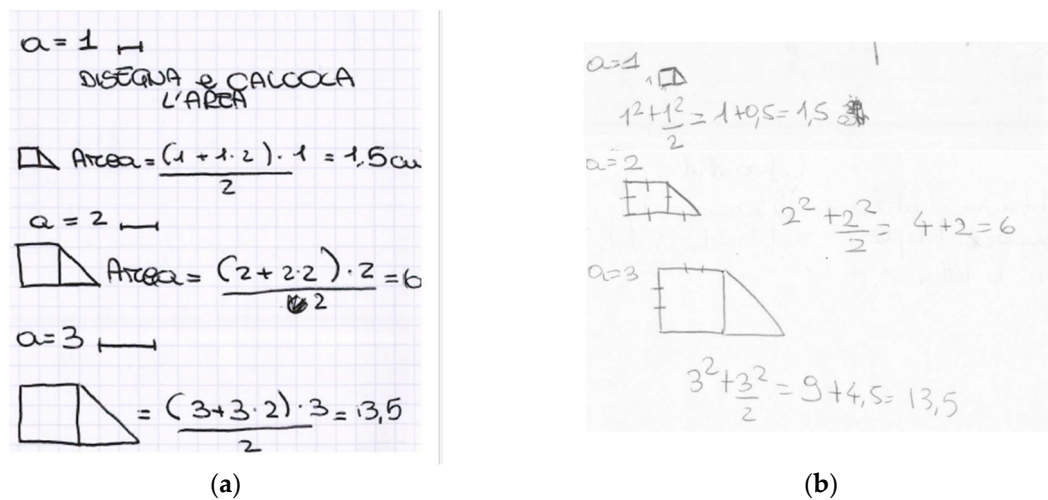 a = 1
DISEGNA e CALCOLA
L'AREA
Area = (1 + 1·2)·1 = 1,5 cm
2
a = 2
Area = (2 + 2·2)·2 = 6
2
a = 3
= (3+3·2)·3 = 13,5
2
(a)
a=1
1
1² + 1² = 1+0,5 = 1,5
2
a=2
2² + 2² = 4+2=6
2
a=3
3² + 3² = 9+4,5= 13,5
2
(b)